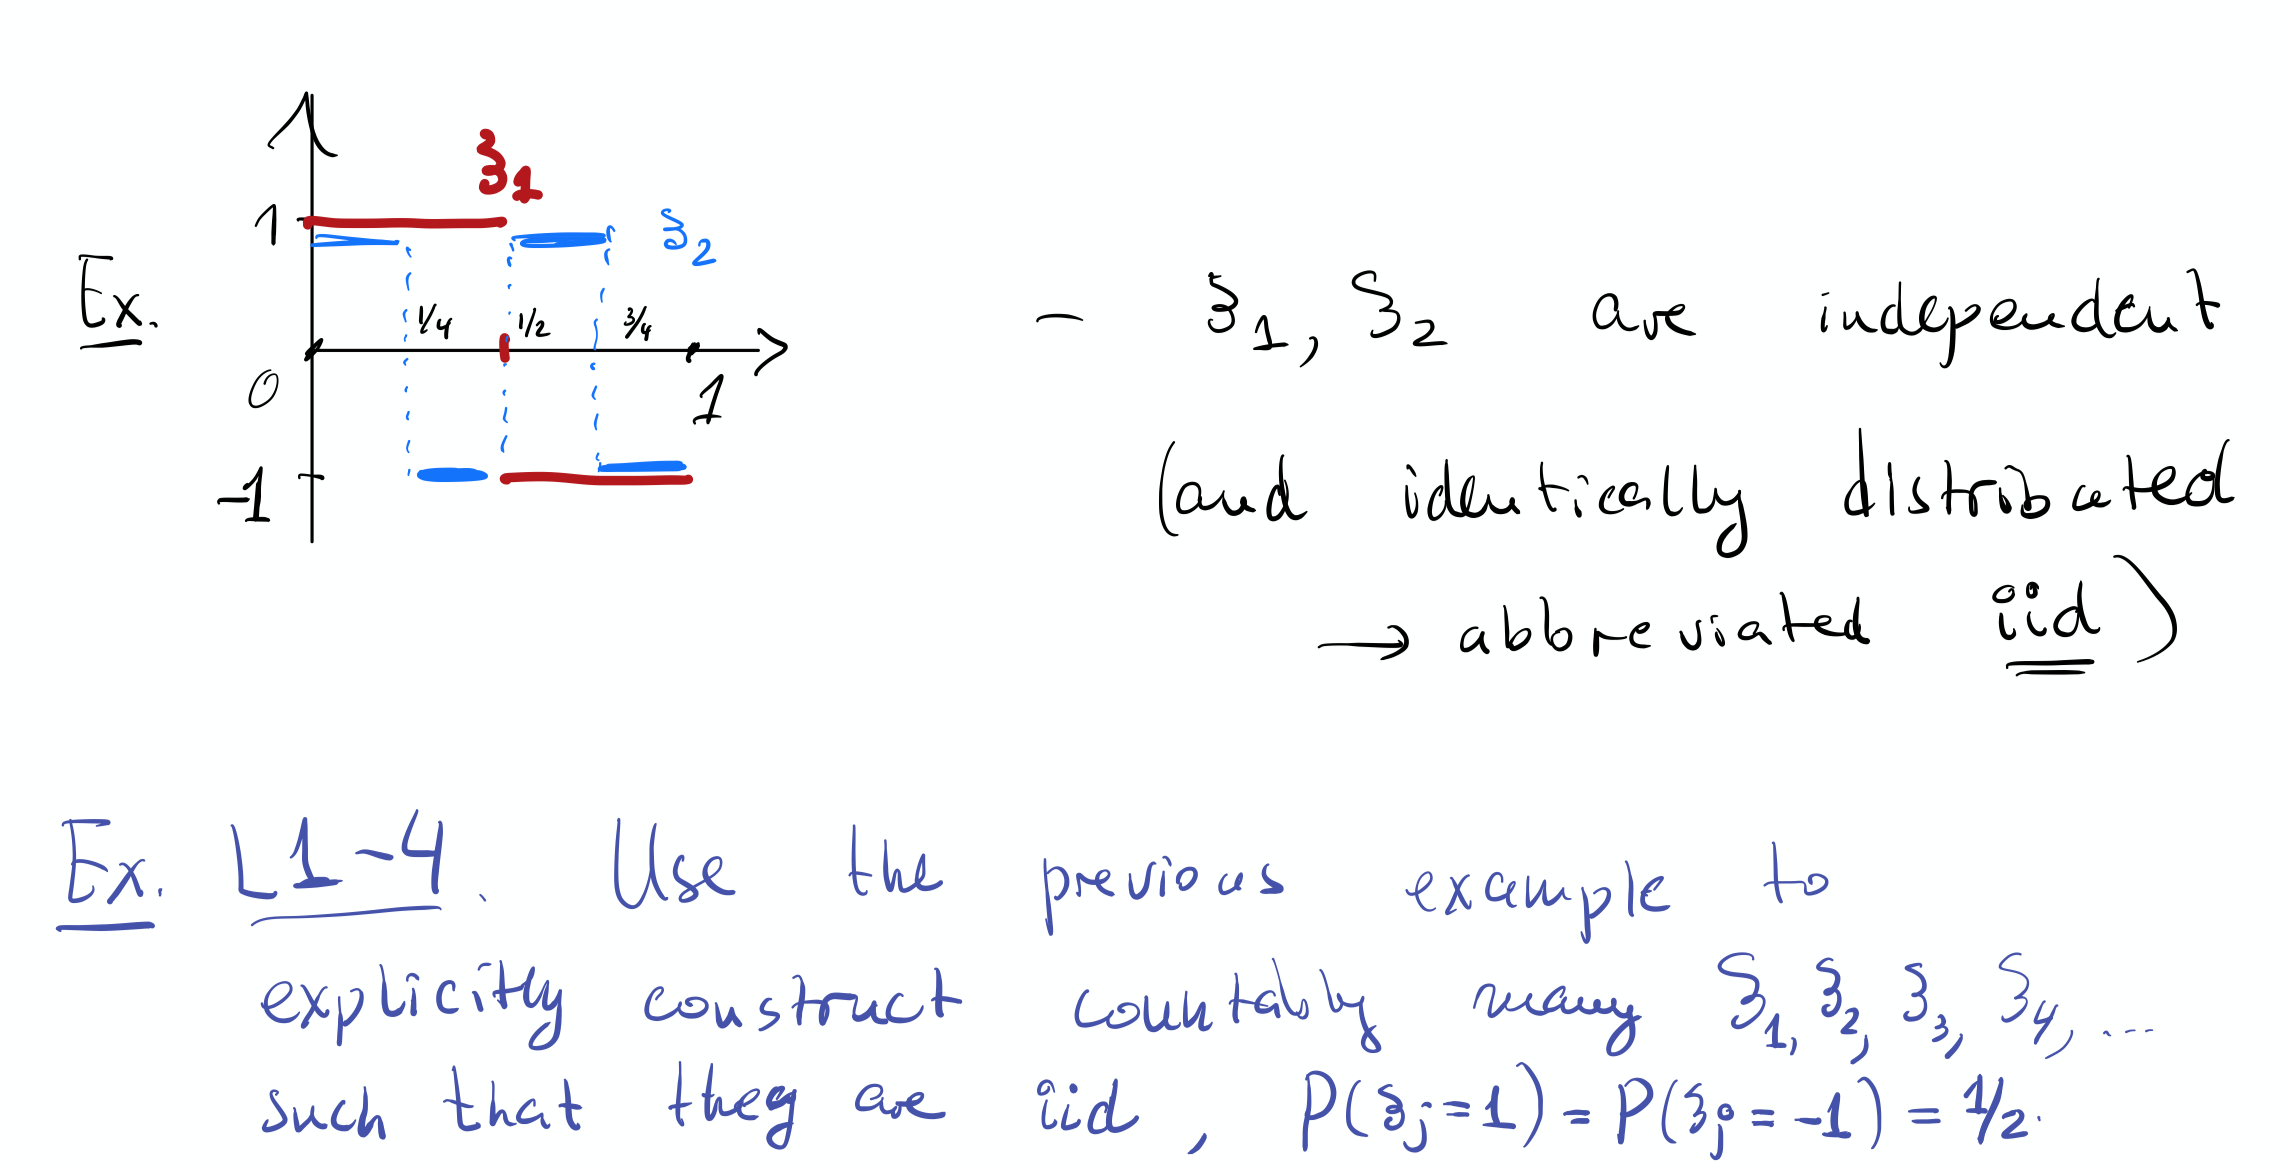 ξ₁
1
ξ₂
Ex.
1/4 1/2 3/4
0
1
-1
– ξ₁, ξ₂ are independent
(and identically distributed
→ abbreviated iid)
Ex. L1-4. Use the previous example to
explicitly construct countably many ξ₁, ξ₂, ξ₃, ξ₄, ...
such that they are iid, P(ξⱼ=1) = P(ξⱼ=-1) = 1/2.